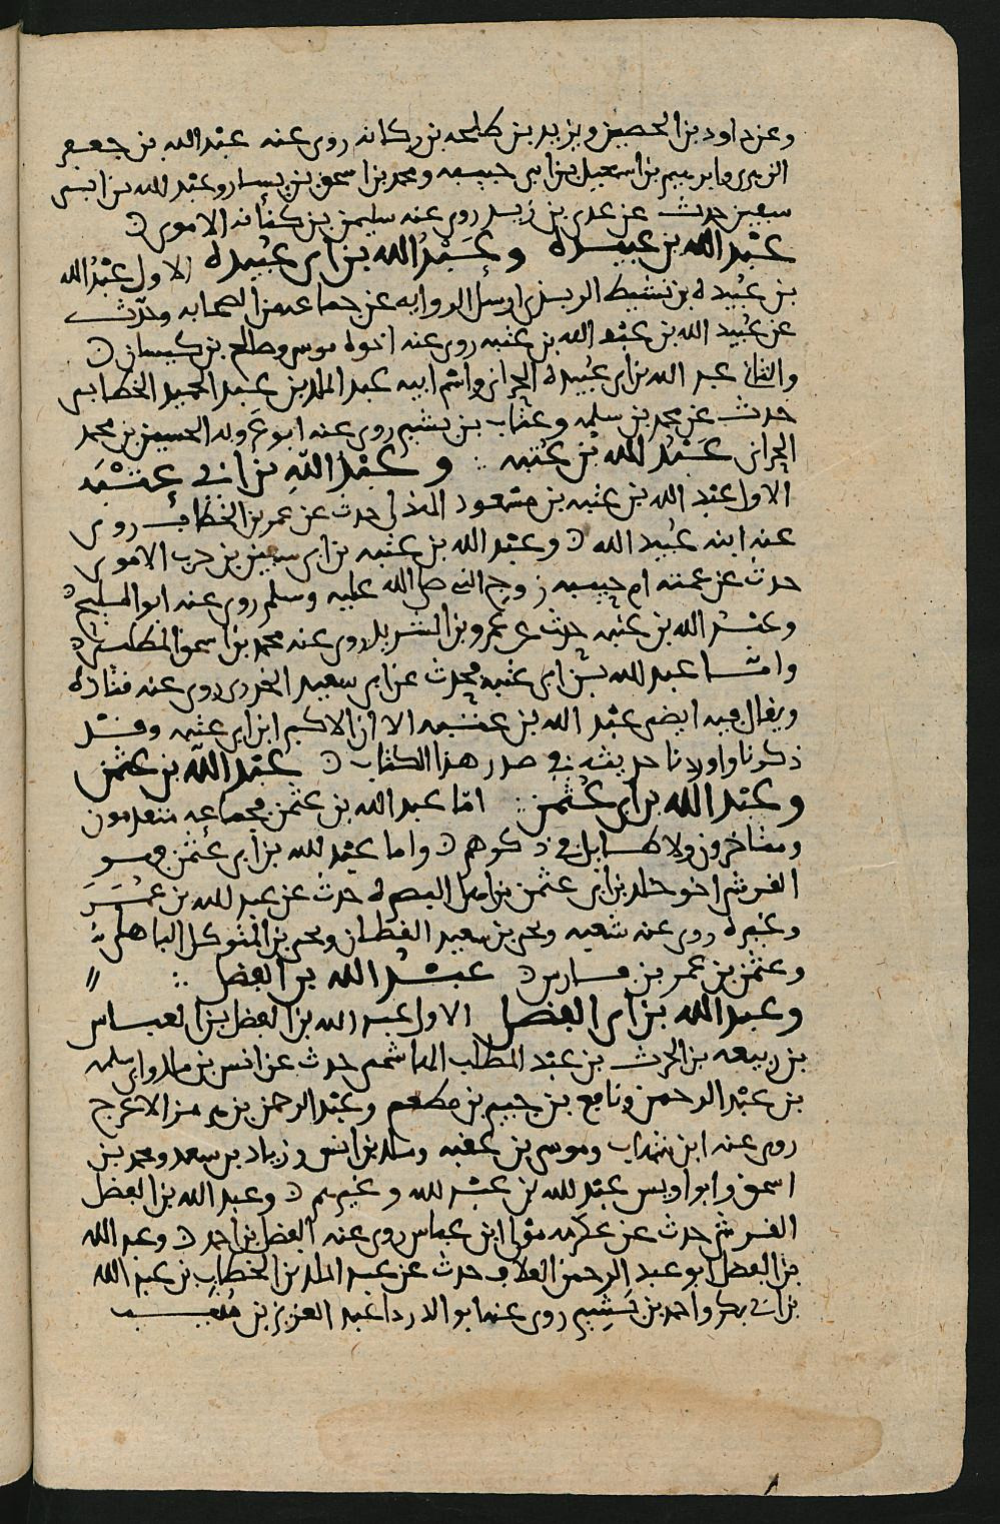 وعن داود بن الحصين ويزيد بن طلحه بن ركانه روى عنه عبد الله بن جعفر
الزهري وابرهيم بن اسمعيل بن ابي حبيبه ومحمد بن اسحق بن يسار وعبد الله بن ابي
سفين حدث عن عدي بن زيد روى عنه سليمن بن كنانه الاموي
عبد الله بن عبيدة وعبد الله بن ابي عبيده الاول عبد الله
بن عبيده بن نشيط الربذي ارسل الروايه عن جماعه من الصحابه وحدث
عن عبيد الله بن عبد الله بن عتبه روى عنه اخوه موسى وصالح بن كيسان
والثاني عبد الله بن ابي عبيده الحراني واسم ابيه عبد الملك بن عبد الحميد الخطابي
حدث عن محمد بن سلمه وعتاب بن بشير روى عنه ابو عروبه الحسين بن محمد
الحراني عبد الله بن عتبه وعبد الله بن ابي عتبه
الاول عبد الله بن عتبه بن مسعود الهذلي حدث عن عمر بن الخطاب روى
عنه ابنه عبيد الله وعبد الله بن عتبه بن ابي سفين بن حرب الاموي
حدث عن عمته ام حبيبه زوج النبي صلى الله عليه وسلم روى عنه ابو المليح
وعبد الله بن عتبه حدث عن عمرو بن الشريد روى عنه محمد بن اسحق المطلبي
واما عبد الله بن ابي عتبه فحدث عن ابي سعيد الخدري روى عنه قتاده
ويقال فيه ايضا عبد الله بن عتبه الا ان الاكثر ابن ابي عتبه وقد
ذكرنا واوردنا حديثه في صدر هذا الكتاب عبد الله بن عثمن
وعبد الله بن ابي عثمن اما عبد الله بن عثمن فجماعه متقدمون
ومتاخرون ولا طايل في ذكرهم واما عبد الله بن ابي عثمن فهو
القرشي اخو خالد بن ابي عثمن من اهل البصره حدث عن عبد الله بن عمر
وغيره روى عنه شعبه ويحيى بن سعيد القطان ويحيى بن المتوكل الباهلي
وعثمن بن عمر بن فارس عبد الله بن الفضل
وعبد الله بن ابي الفضل الاول عبد الله بن الفضل بن العباس
بن ربيعه بن الحرث بن عبد المطلب الهاشمي حدث عن انس بن مالك وابي سلمه
بن عبد الرحمن ونافع بن جبير بن مطعم وعبد الرحمن بن هرمز الاعرج
روى عنه ابن شهاب وموسى بن عقبه ومالك بن انس وزياد بن سعد ومحمد بن
اسحق وابو اويس عبد الله بن عبد الله وغيرهم وعبد الله بن الفضل
القرشي حدث عن عكرمه مولى ابن عباس روى عنه الفضل بن احمد وعبد الله
بن الفضل ابو عبد الرحمن العلاف حدث عن عبد الملك بن الخطاب بن عبيد الله
بن ابي بكره واحمد بن بشير روى عنه ابو الدرداء عبد العزيز بن منيب